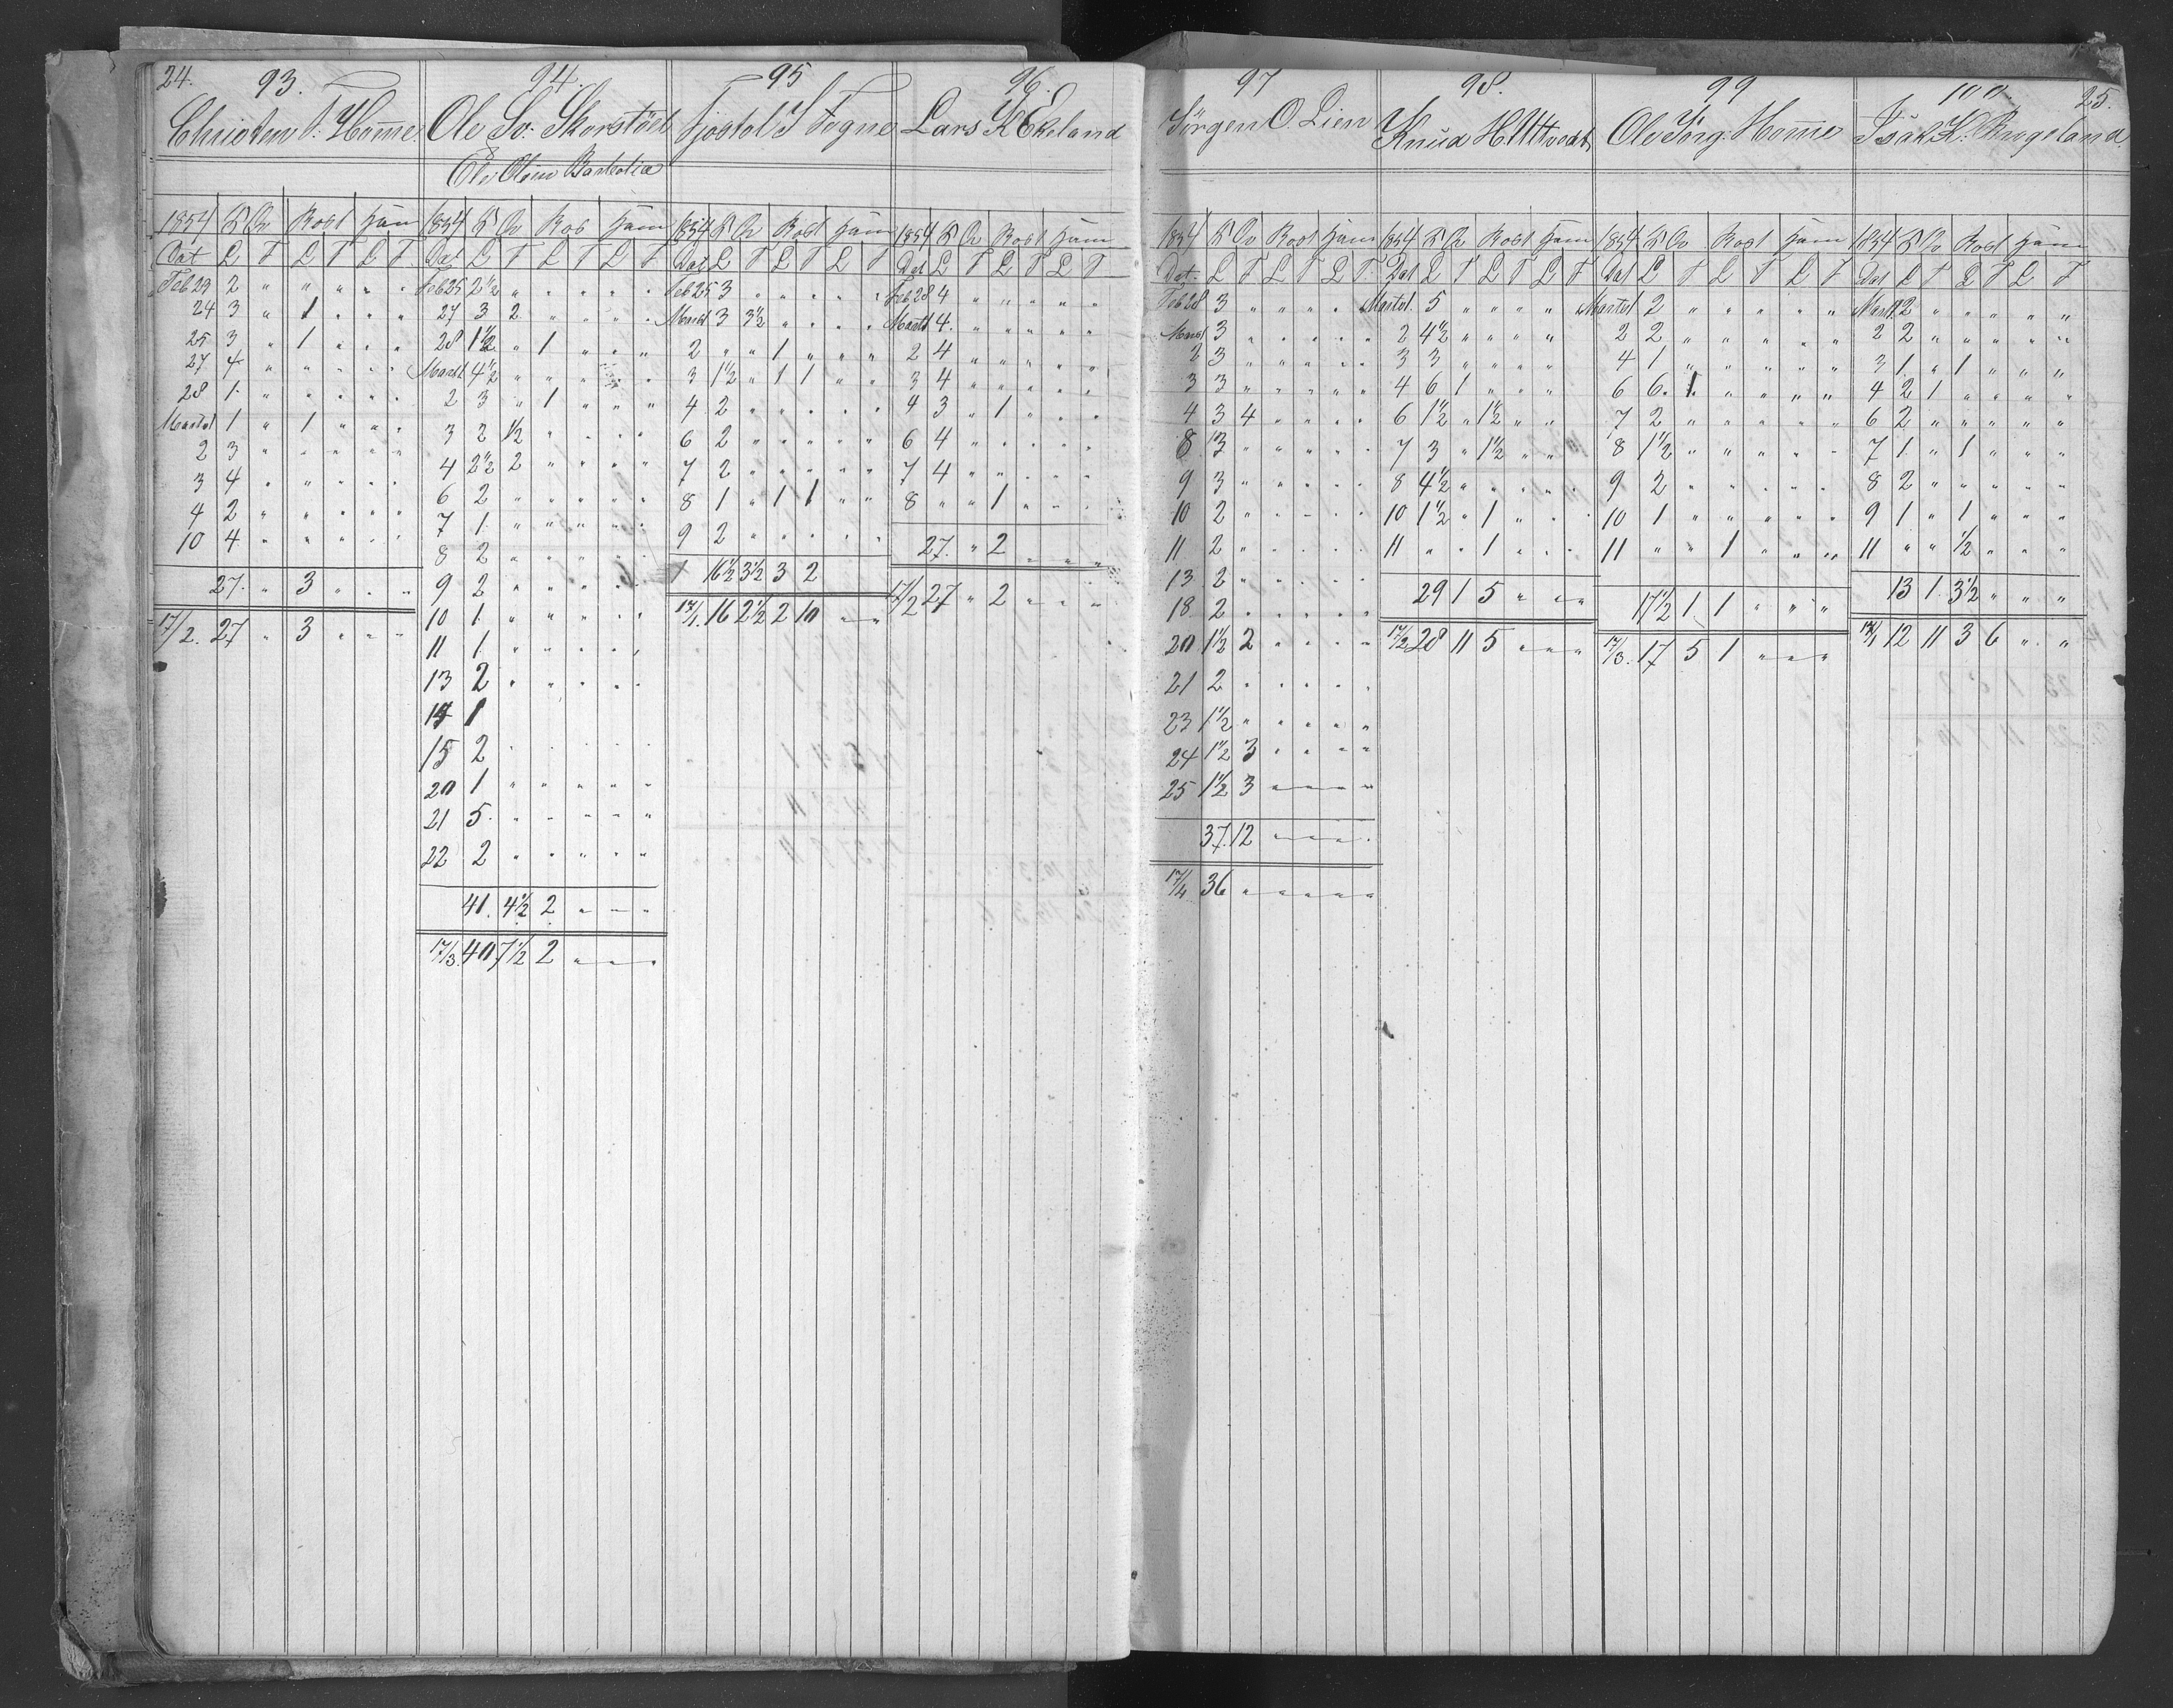 24.
93.
Christen T. Home
1854 K Ov Rost Ham
Dat L T L T L T
Feb 29 2 " " " " "
24 3 " 1 " " "
25 3 " 1 " " "
27 4 " " " " "
28 1 " " " " "
Marts 1 1 " 1 " " "
2 3 " " " " "
3 4 " " " " "
4 2 " " " " "
10 4 " " " " "
27. " 3 " " "
17/2. 27 " 3 " " "
94.
Ole Sv. Skorstöl
Ole Olsen
1854 K Ov Ros Ham
Dat L T L T L T
Feb 25 2 1/2 " " " " "
27 3 2 " " " "
28 1 1/2 " 1 " " "
Marts 1 4 1/2 " " " " "
2 3 " 1 " " "
3 2 1/2 " " " "
4 2 1/2 2 " " " "
6 2 " " " " "
7 1 " " " " "
8 2 " " " " "
9 2 " " " " "
10 1 " " " " "
11 1 " " " " "
13 2 " " " " "
14 1
15 2 " " " " "
20 1 " " " " "
21 5 " " " " "
22 2 " " " " "
41. 4 1/2 2 " " "
17/3. 40 7 1/2 2 " " "
95
Tjostol S Fogne
1854 K Ov Rost Ham
Dat L T L T L T
Feb 25 3 " " " " "
Marts 1 3 3 1/2 " " " "
2 " " 1 " " "
3 1 1/2 " 1 1 " "
4 2 " " " " "
6 2 " " " " "
7 2 " " " " "
8 1 " 1 1 " "
9 2 " " " " "
16 1/2 3 1/2 3 2
17/1. 16 2 1/2 2 10 " "
96.
Lars K Ekeland
1854 K Ov Rost Ham
Dat L T L T L T
Feb 28 4 " " " " "
Marts 1 4 " " " " "
2 4 " " " " "
3 4 " " " " "
4 3 " 1 " " "
6 4 " " " " "
7 4 " " " " "
8 " " 1 " " "
27. " 2 " " "
17/2 27 " 2 " " "
97
Jörgen O. Lien
1854 K Ov Rost Ham
Dat. L T L T L T
Feb 28 3 " " " " "
Marts 1 3 " " " " "
2 3 " " " " "
3 3 " " " " "
4 3 4 " " " "
8 3 " " " " "
9 3 " " " " "
10 2 " " " " "
11 2 " " " " "
13 2 " " " " "
18 2 " " " " "
20 1 1/2 2 " " " "
21 2 " " " " "
23 1 1/2 " " " " "
24 1 1/2 3 " " " "
25 1 1/2 3 " " " "
37. 12 " " " "
17/4. 36 " " " " "
98.
Knud H.
1854 K Ov Rost Ham
Dat L T L T L T
Marts 1. 5 " " " " "
2 4 1/2 " " " " "
3 3 " " " " "
4 6 1 " " " "
6 1 1/2 " 1 1/2 " " "
7 3 " 1 1/2 " " "
8 4 1/2 " " " " "
10 1 1/2 " 1 " " "
11 " " 1 " " "
29 1 5 " " "
17/2 28 11 5 " " "
99
Ole Jörg. Home
1854 K Ov Rost Ham
Dat L T L T L T
Marts 1 2 " " " " "
2 2 " " " " "
4 1 " " " " "
6 6. 1 " " " "
7 2 " " " " "
8 1 1/2 " " " " "
9 2 " " " " "
10 1 " " " " "
11 " " 1 " " "
17 1/2 1 1 " " "
17/3. 17 5 1 " " "
100
25.
Isak K. Ringeland
1854 K Ov Rost Ham
Dat L T L T L T
Marts 1 2 " " " " "
2 2 " " " " "
3 1 " 1 " " "
4 2 1 " " " "
6 2 " " " " "
7 1 " 1 " " "
8 2 " " " " "
9 1 " 1 " " "
11 " " 1/2 " " "
13 1 3 1/2 " " "
17/1 12 11 3 6 " "